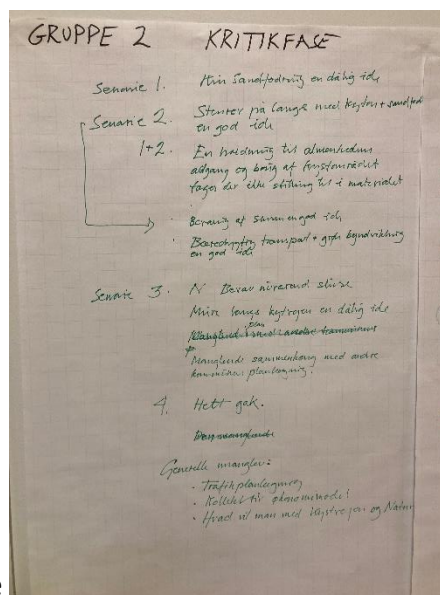 GRUPPE 2 KRITIKFASE
Senarie 1. Kun Sandfodring en dålig ide
Senarie 2. Stenrev på langs med kysten + sandfod
en god ide
1+2. En holdning til almenhedens
adgang og brug af kystområdet
tager der ikke stilling til i materialet
Bevaring af sluse en god ide
Bæredygtig transport + grøn byudvikling
en god ide
Senarie 3. Bevar nuværende sluse
Mure langs kystvejen en dålig ide
Manglende sammenhæng med andre
kommuners planlægning.
4. Helt gak.
Generelle mangler:
· Trafikplanlægning
· Kollektiv
· Hvad vil man med kystvejen og Natur